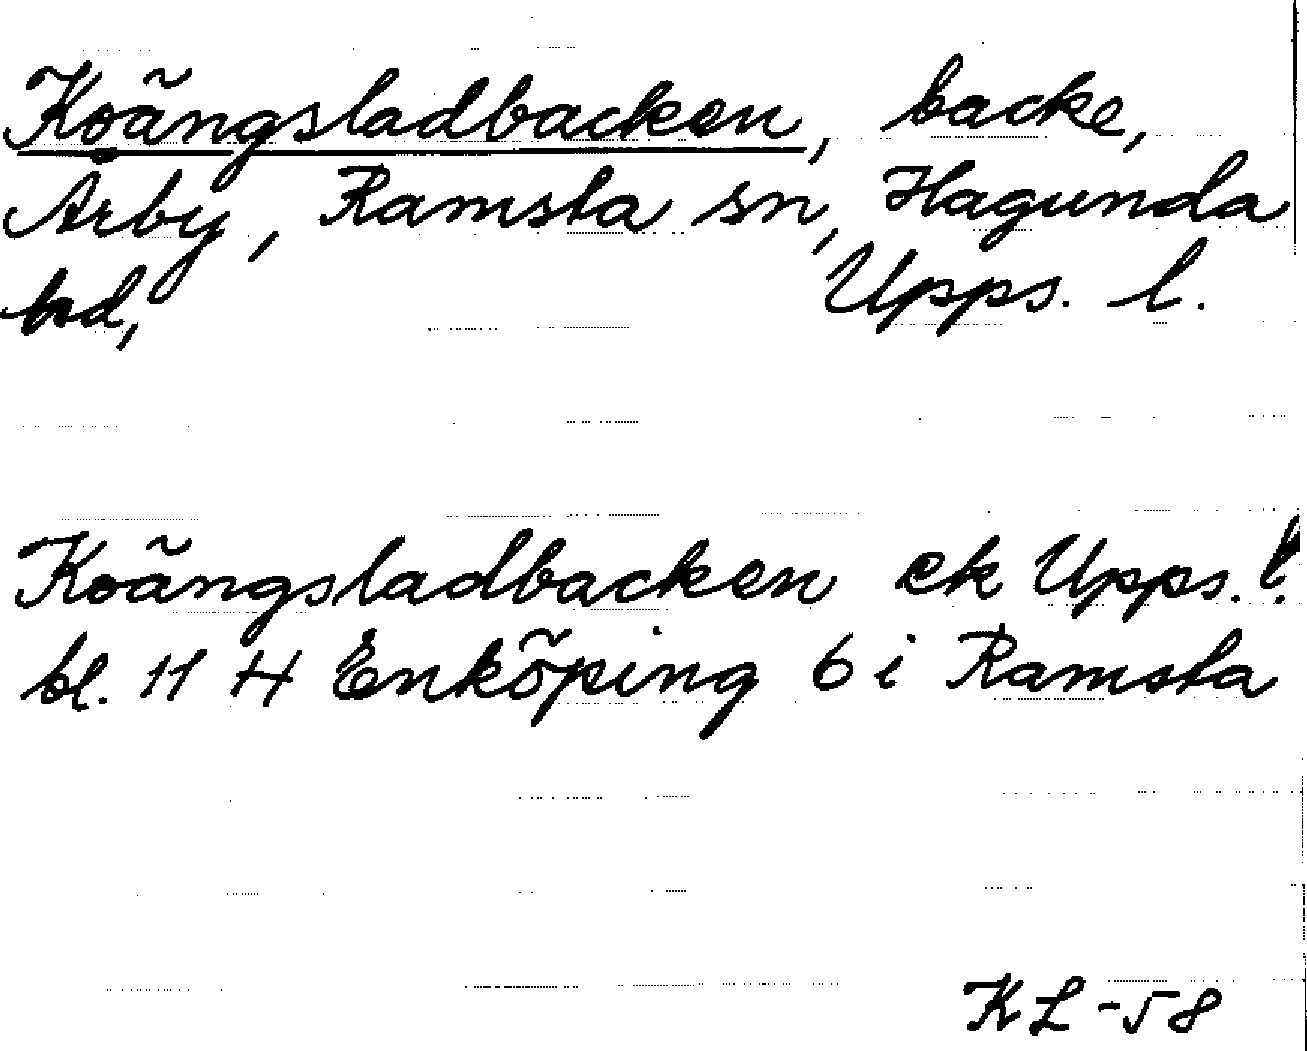 Koängsladbacken, backe,
Årby, Ramsta sn, Hagunda
hd, Upps. l.
Koängsladbacken ek Upps. l.
bl. 11 H Enköping 6 i Ramsta
KL -58